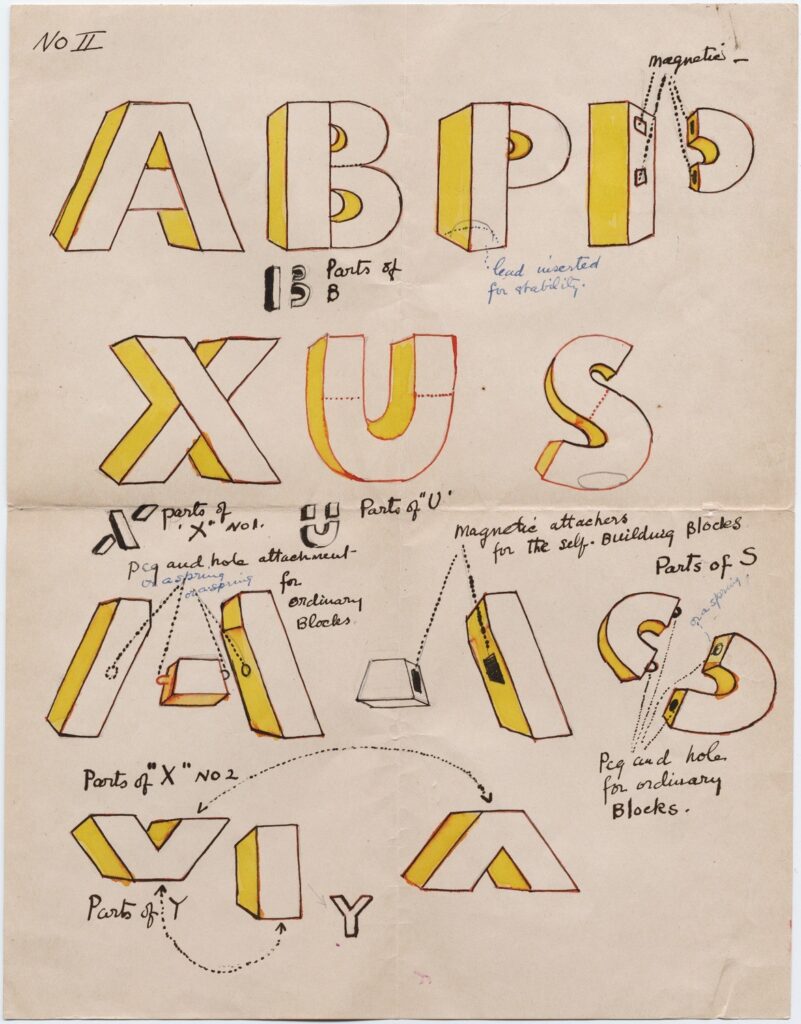 No II
magnetic -
A B P I
Parts of
B
lead inserted
for stability.
X U S
parts of
"X" No 1.
Parts of "U"
Magnetic attachers
for the self-Building Blocks
Peg and hole attachment
or a spring
or a spring
for
ordinary
Blocks.
Parts of S
or a spring
Peg and hole
for ordinary
Blocks.
Parts of "X" No 2
Parts of Y
Y